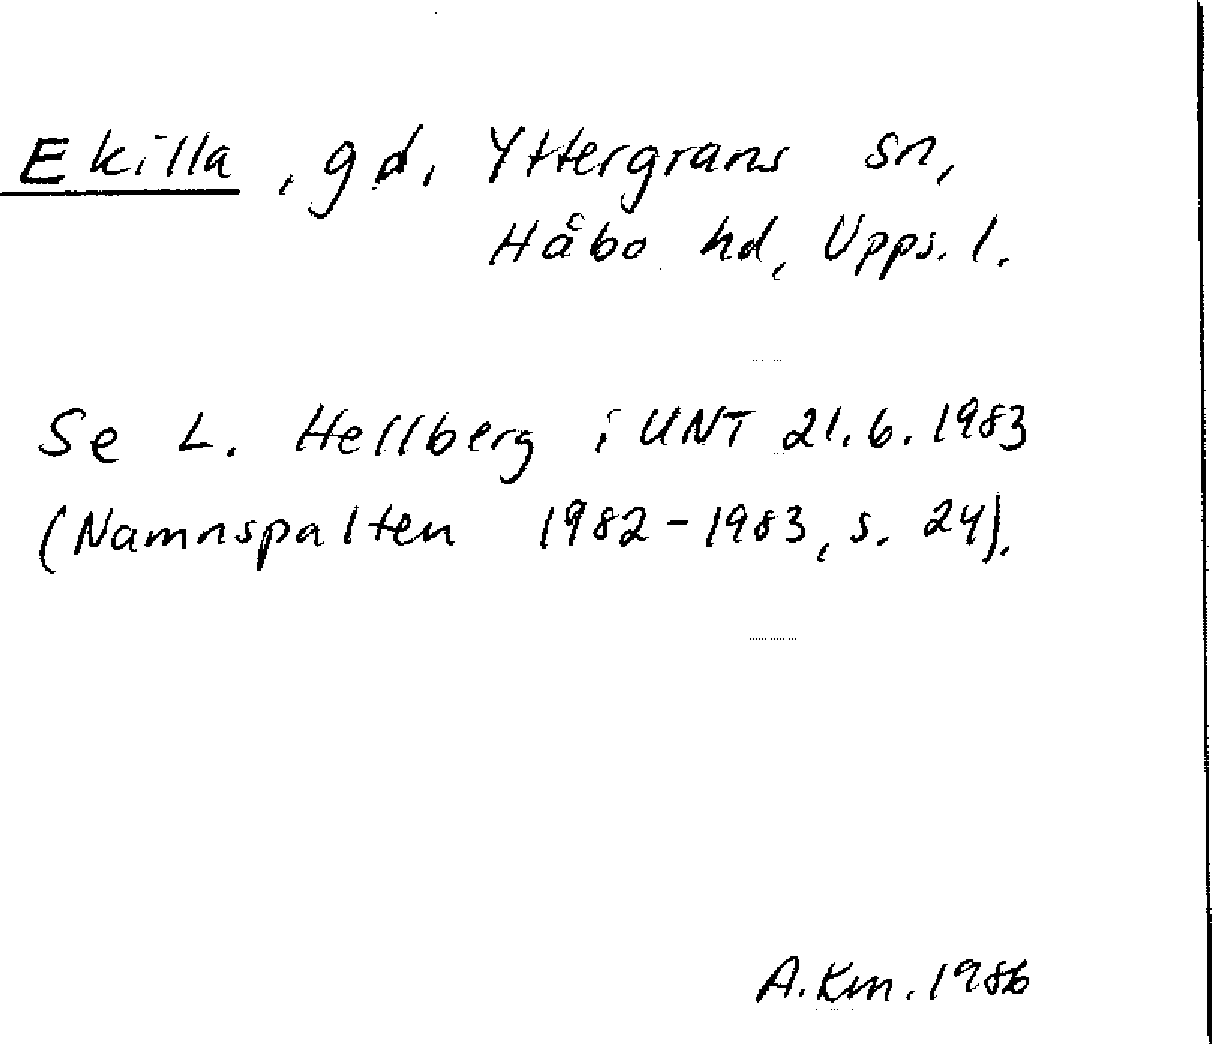 Ekilla, gd, Yttergrans sn,
Håbo hd, Upps. l.
Se L. Hellberg i UNT 21.6.1983
(Namnspalten 1982-1983, s. 24).
A.Km. 1986